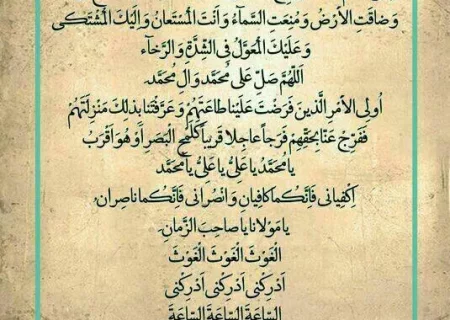 وَ ضاقَتِ الْأَرْضُ وَ مُنِعَتِ السَّمآءُ وَ اَنْتَ الْمُسْتَعانُ وَ اِلَيْكَ الْمُشْتَكى
وَ عَلَيْكَ الْمُعَوَّلُ فِى الشِّدَّةِ وَ الرَّخآءِ
اَللّهُمَّ صَلِّ عَلى مُحَمَّدٍ وَ الِ مُحَمَّدٍ
اُولِى الْأَمْرِ الَّذينَ فَرَضْتَ عَلَيْنا طاعَتَهُمْ وَ عَرَّفْتَنا بِذلِكَ مَنْزِلَتَهُمْ
فَفَرِّجْ عَنّا بِحَقِّهِمْ فَرَجاً عاجِلا قَريباً كَلَمْحِ الْبَصَرِ اَوْ هُوَ اَقْرَبُ
يا مُحَمَّدُ يا عَلِىُّ يا عَلِىُّ يا مُحَمَّدُ
اِكْفِيانى فَاِنَّكُما كافِيانِ وَ انْصُرانى فَاِنَّكُما ناصِرانِ
يا مَوْلانا يا صاحِبَ الزَّمانِ
الْغَوْثَ الْغَوْثَ الْغَوْثَ
اَدْرِكْنى اَدْرِكْنى اَدْرِكْنى
السّاعَةَ السّاعَةَ السّاعَةَ